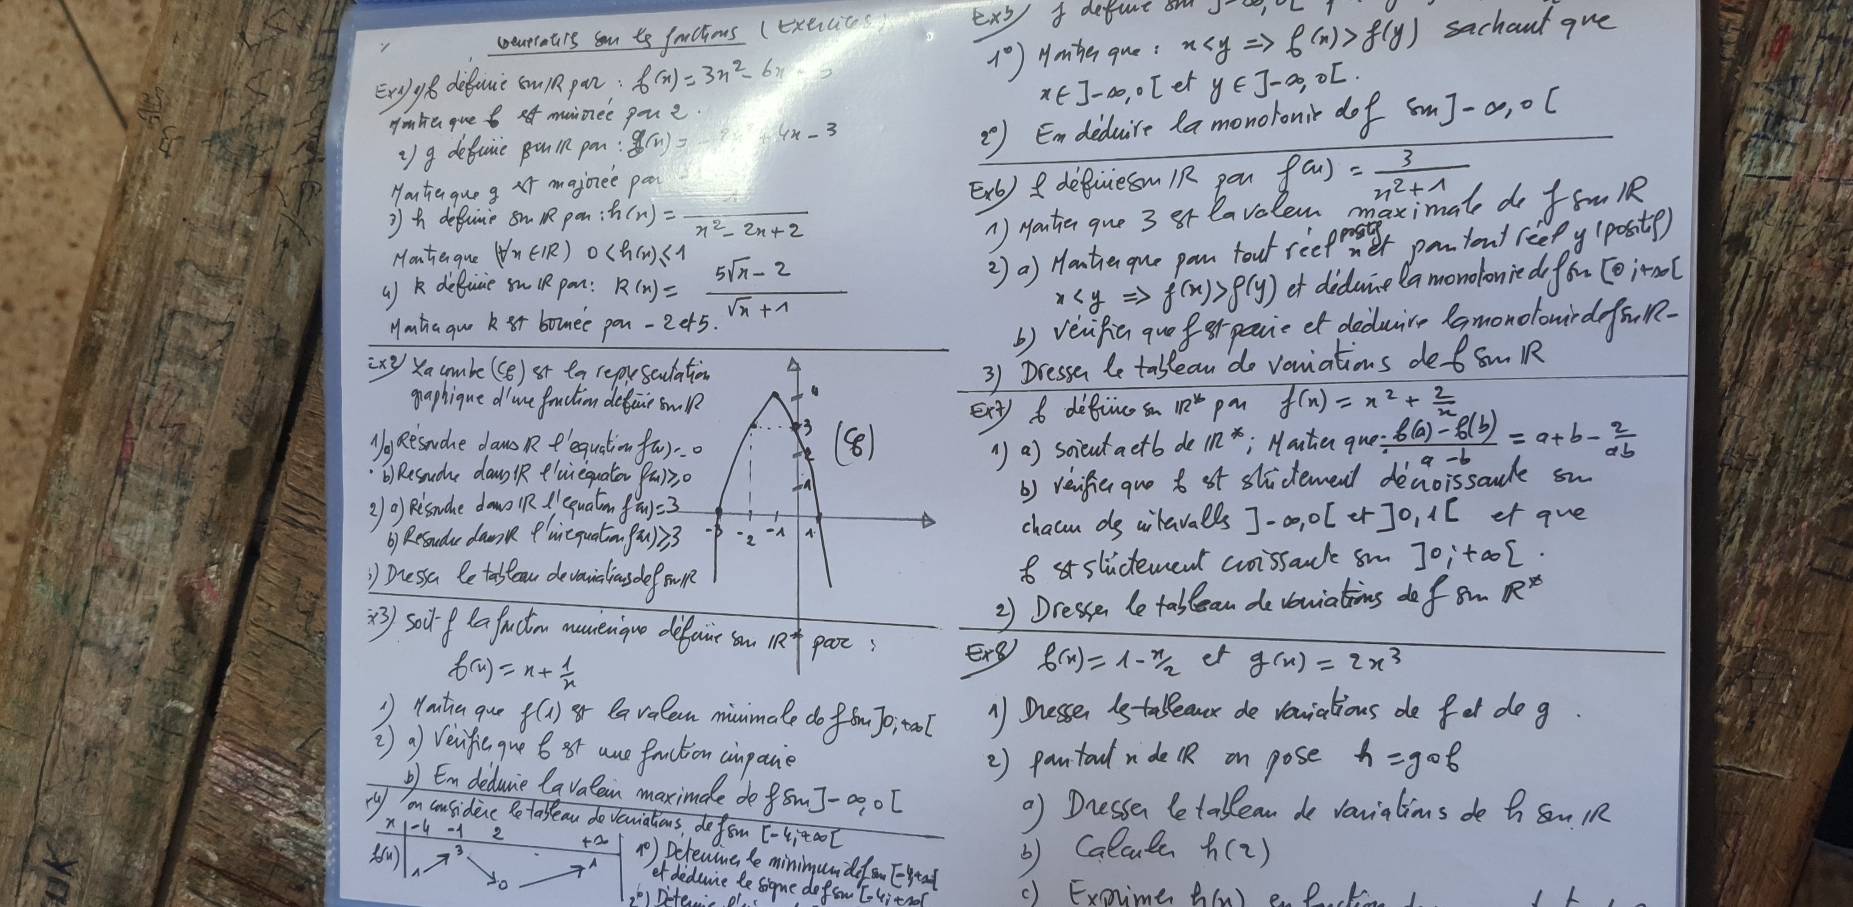 Généralités sur les fonctions (Exercices)
Ex1) 1) f définie sur IR par : f(x) = 3x² - 6x
Montrer que f est minorée par 2.
2) g définie sur IR par : g(x) = + 4x - 3
Montrer que g est majorée par
3) h définie sur IR par : h(x) = 1 / (x² - 2x + 2)
Montrer que (∀x ∈ IR) 0 < h(x) ≤ 1
4) k définie sur IR par : k(x) = (5√x - 2) / (√x + 1)
Montrer que k est bornée par -2 et 5.
Ex2) La courbe (Cf) est la représentation
graphique d'une fonction définie sur IR
1) a) Résoudre dans IR l'equation f(x) = 0
b) Resoudre dans IR l'inéquation f(x) ≥ 0
2) a) Résoudre dans IR l'equation f(x) = 3
b) Resoudre dans IR l'inequation f(x) ≥ 3
3) Dresser le tableau de variations de f sur IR
4
3
2
1
(Cf)
-3 -2 -1 1
Ex3) Soit f la fonction numérique définie sur IR* par :
f(x) = x + 1/x
1) Montrer que f(1) est la valeur minimale de f sur ]0;+∞[
2) a) Vérifier que f est une fonction impaire
b) En déduire la valeur maximale de f sur ]-∞,0[
Ex4) on considère le tableau de variations de f sur [-4;+∞[
x | -4 -1 2 +∞
f(x) | 1 ↗ 3 ↘ 0 ↗ 1
1°) Déterminer le minimum de f sur [-4;+∞[
et déduire le signe de f sur [-4;+∞[
Ex5) f définie sur ]-∞,0[
1°) Montrer que : x < y => f(x) > f(y) sachant que
x ∈ ]-∞,0[ et y ∈ ]-∞,0[.
2°) En déduire la monotonie de f sur ]-∞,0[
Ex6) f définie sur IR par f(x) = 3 / (x² + 1)
1) Montrer que 3 est la valeur maximale de f sur IR
2) a) Montrer que pour tout réel positif x et pour tout réel y (positif)
x < y => f(x) > f(y) et déduire la monotonie de f sur [0;+∞[
b) Vérifier que f est paire et déduire la monotonie de f sur IR-
3) Dresser le tableau de variations de f sur IR
Ex7) f définie sur IR* par f(x) = x² + 2/x
1) a) soient a et b de IR* ; Montrer que : (f(a) - f(b)) / (a - b) = a + b - 2/ab
b) vérifier que f est strictement décroissante sur
chacun des intervalles ]-∞,0[ et ]0,1[ et que
f est strictement croissante sur ]0;+∞[.
2) Dresser le tableau de variations de f sur IR*
Ex8) f(x) = 1 - x/2 et g(x) = 2x³
1) Dresser les tableaux de variations de f et de g.
2) pour tout x de IR on pose h = gof
a) Dresser le tableau de variations de h sur IR
b) Calculer h(2)
c) Exprimer h(x) en fonction